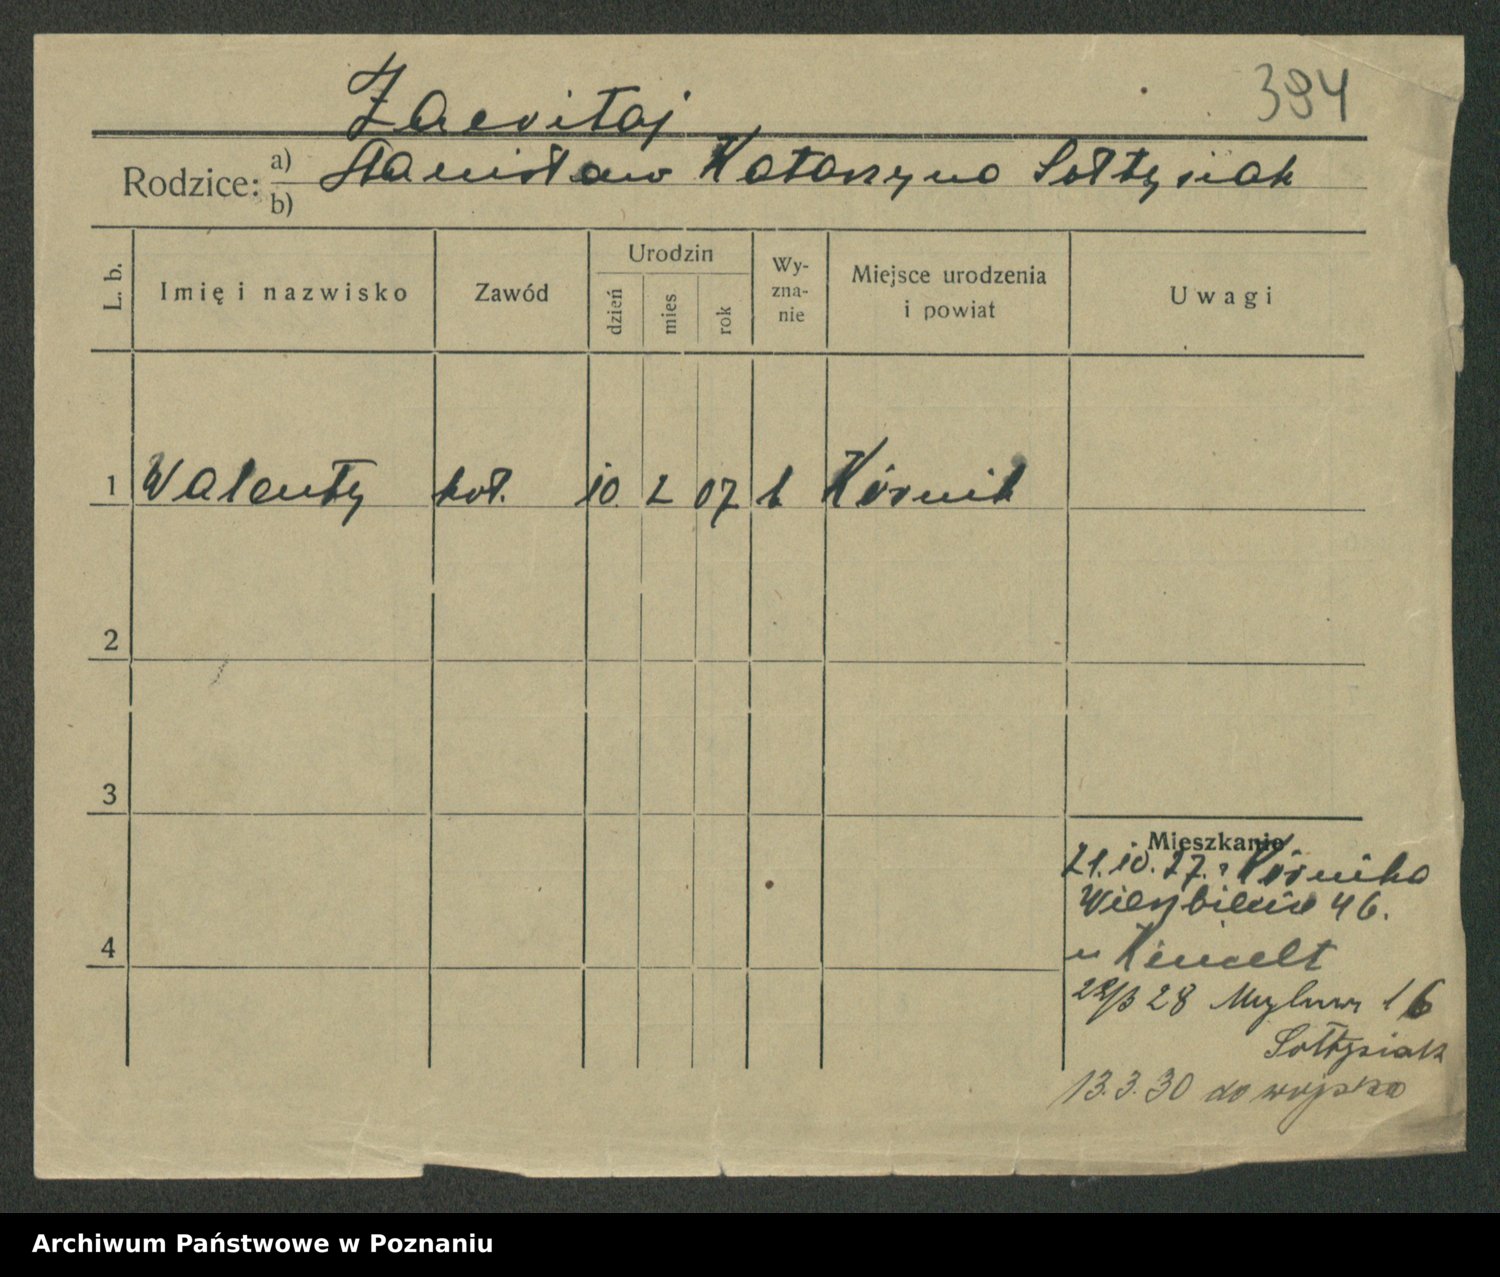 394
Zaewitaj
Rodzice: a) b) Stanisław Katarzyna Sołtysiak
L. b.
Imię i nazwisko
Zawód
Urodzin
dzień
mies
rok
Wy-
zna-
nie
Miejsce urodzenia
i powiat
Uwagi
1 Walenty koł. 10. 2 07 k Kórnik
2
3
4
Mieszkanie
21.10.27. z Kórnika
46.
u
28 16
Sołtysiak
13.3.30 do wojska
Archiwum Państwowe w Poznaniu